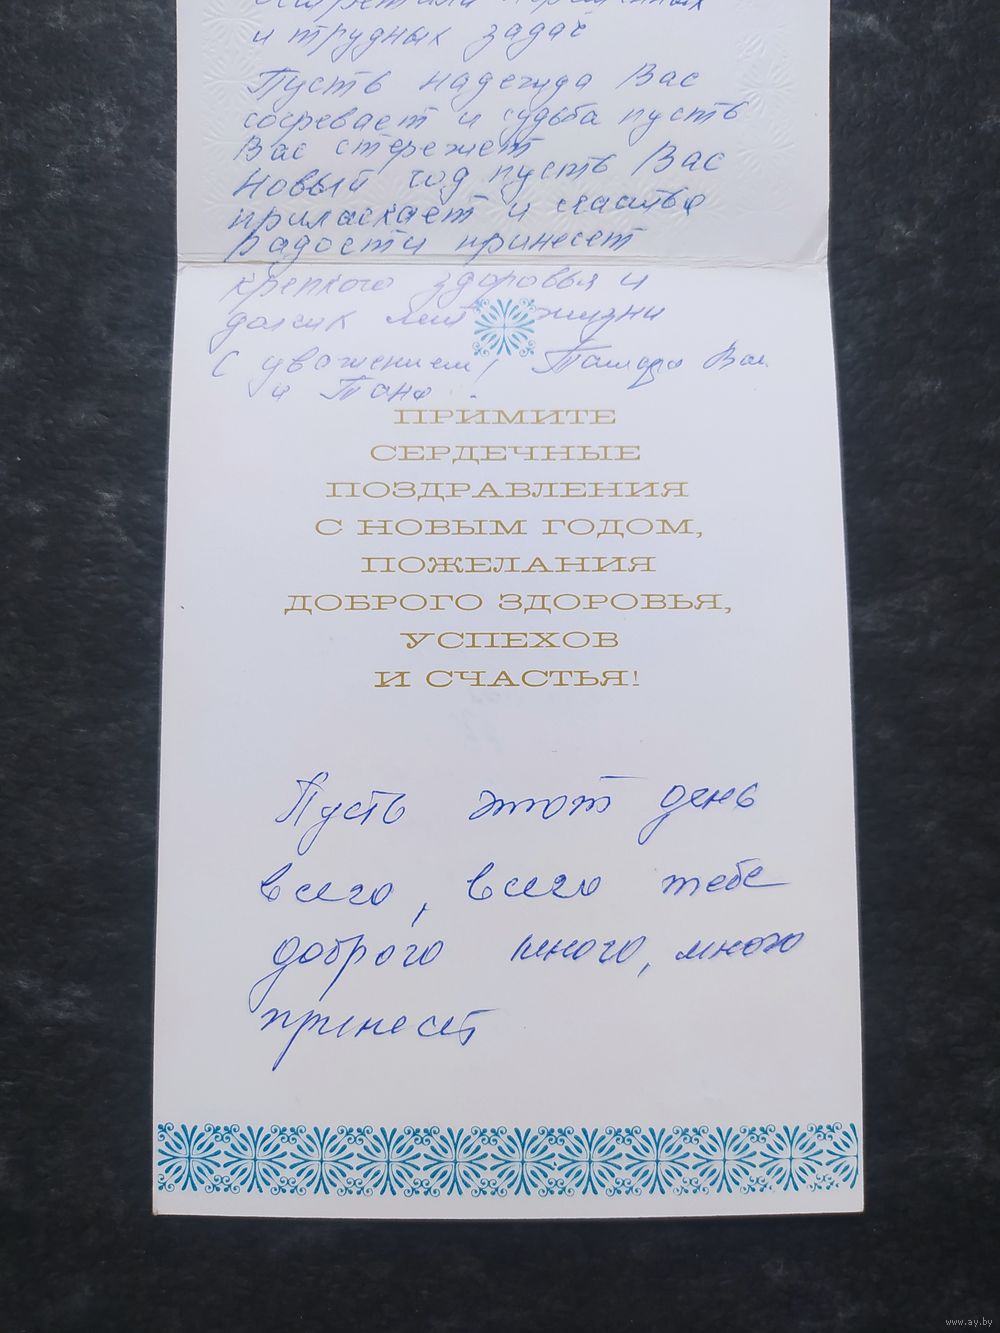 и трудных задач
Пусть надежда Вас
согревает и судьба пусть
Вас стережет
Новый год пусть Вас
приласкает и счастье
радости принесет
крепкого здоровья и
долгих лет жизни
С уважением! Тамара Вас.
и Таня
ПРИМИТЕ
СЕРДЕЧНЫЕ
ПОЗДРАВЛЕНИЯ
С НОВЫМ ГОДОМ,
ПОЖЕЛАНИЯ
ДОБРОГО ЗДОРОВЬЯ,
УСПЕХОВ
И СЧАСТЬЯ!
Пусть этот день
всего, всего тебе
доброго много, много
принесет
www.ay.by